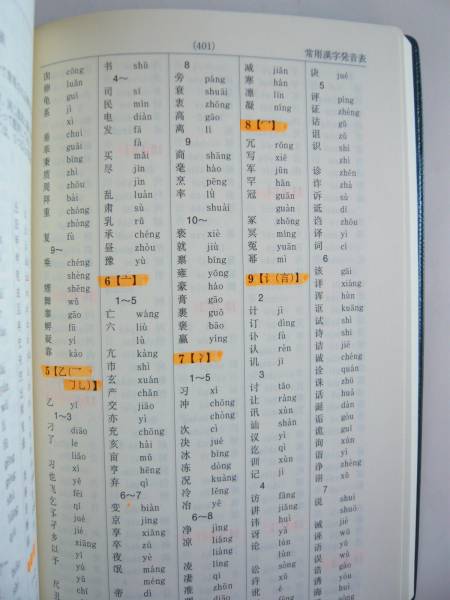 (401)
常用漢字発音表
囱 cōng
卵 luǎn
龟 guī
系 jì
xì
垂 chuí
乖 guāi
秉 bǐng
质 zhì
周 zhōu
拜 bài
重 chóng
zhòng
复 fù
9～
乘 chéng
shèng
甥 shēng
舞 wǔ
睾 gāo
孵 fū
疑 yí
靠 kào
5【乙(乛
乛乚)】
乙 yǐ
1～3
刁 diāo
了 le
liǎo
习 xí
也 yě
飞 fēi
乞 qǐ
孑 jué
子 jié
乡 xiāng
以 yǐ
予 yú
yǔ
尺 chǐ
丑
书 shū
4～
司 sī
民 mín
电 diàn
发 fā
fà
买 mǎi
尽 jǐn
jìn
乱 luàn
肃 sù
乳 rǔ
承 chéng
昼 zhòu
豫 yù
6【亠】
1～5
亡 wáng
六 liù
lù
亢 kàng
市 shì
玄 xuán
产 chǎn
交 jiāo
亦 yì
充 chōng
亥 hài
亩 mǔ
亨 hēng
弃 qì
6～7
变 biàn
京 jīng
享 xiǎng
卒 zú
夜 yè
氓 máng
méng
帝 dì
8
旁 páng
衰 shuāi
衷 zhōng
高 gāo
离 lí
9
商 shāng
毫 háo
烹 pēng
率 lǜ
shuài
10～
亵 xiè
就 jiù
禀 bǐng
雍 yōng
豪 háo
膏 gāo
裹 guǒ
褒 bāo
赢 yíng
7【冫】
1～5
习 xí
冲 chōng
chòng
次 cì
决 jué
冰 bīng
冻 dòng
况 kuàng
冷 lěng
冶 yě
6～8
净 jìng
凉 liáng
liàng
凌 líng
凄 qī
准 zhǔn
减 jiǎn
寒 hán
凛 lǐn
凝 níng
8【冖】
冗 rǒng
写 xiě
军 jūn
罕 hǎn
冠 guān
guàn
冢 zhǒng
冥 míng
冤 yuān
幂 mì
9【讠(言)】
2
计 jì
订 dìng
讣 fù
认 rèn
讥 jī
3
讨 tǎo
让 ràng
讯 xùn
讪 shàn
议 yì
讫 qì
训 xùn
记 jì
4
访 fǎng
讲 jiǎng
讳 huì
讶 yà
论 lún
lùn
讼 sòng
许 xǔ
诀 jué
5
评 píng
证 zhèng
诂 gǔ
诅 zǔ
识 shí
zhì
诊 zhěn
诈 zhà
诉 sù
诋 dǐ
诌 zhōu
译 yì
词 cí
6
该 gāi
详 xiáng
诨 hùn
诓 kuāng
试 shì
诗 shī
诘 jié
诚 chéng
诠 quán
诛 zhū
话 huà
诞 dàn
诟 gòu
诡 guǐ
询 xún
诣 yì
诤 zhèng
诩 xǔ
7
说 shuì
shuō
诫 jiè
诬 wū
语 yǔ
误 wù
诰 gào
诱 yòu
诲 huì